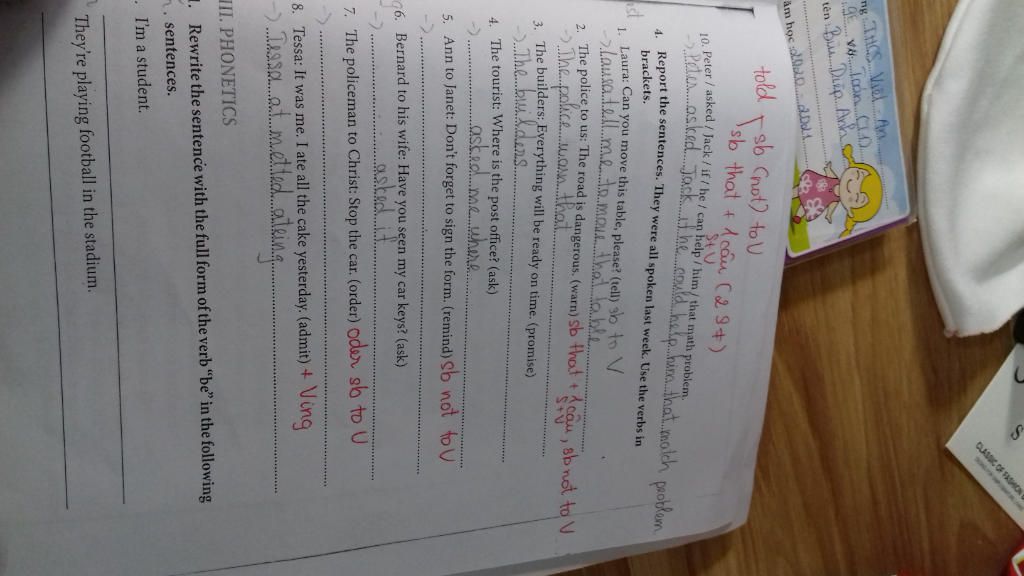 THCS Việt An
told sb (not) to V
sb that + 1 câu (2 9 +)
S+V
10. Peter / asked / Jack / if / he / can help / him / that math problem.
-> Peter asked Jack if he could help him that math problem
4. Report the sentences. They were all spoken last week. Use the verbs in
brackets.
1. Laura: Can you move this table, please? (tell) sb to V
-> Laura tell me to move that table
2. The police to us: The road is dangerous. (warn) sb that + 1 câu, sb not to V
S+V
-> The police warn that
3. The builders: Everything will be ready on time. (promise)
-> The builders
4. The tourist: Where is the post office? (ask)
-> asked me where
5. Ann to Janet: Don't forget to sign the form. (remind) sb not to V
->
6. Bernard to his wife: Have you seen my car keys? (ask)
-> asked it
7. The policeman to Christ: Stop the car. (order) oder sb to V
->
8. Tessa: It was me. I ate all the cake yesterday. (admit) + Ving
-> Tessa at metted ateing
III. PHONETICS
1. Rewrite the sentence with the full form of the verb "be" in the following
sentences.
I'm a student.
They're playing football in the stadium.
CLASSIC OF FASHION